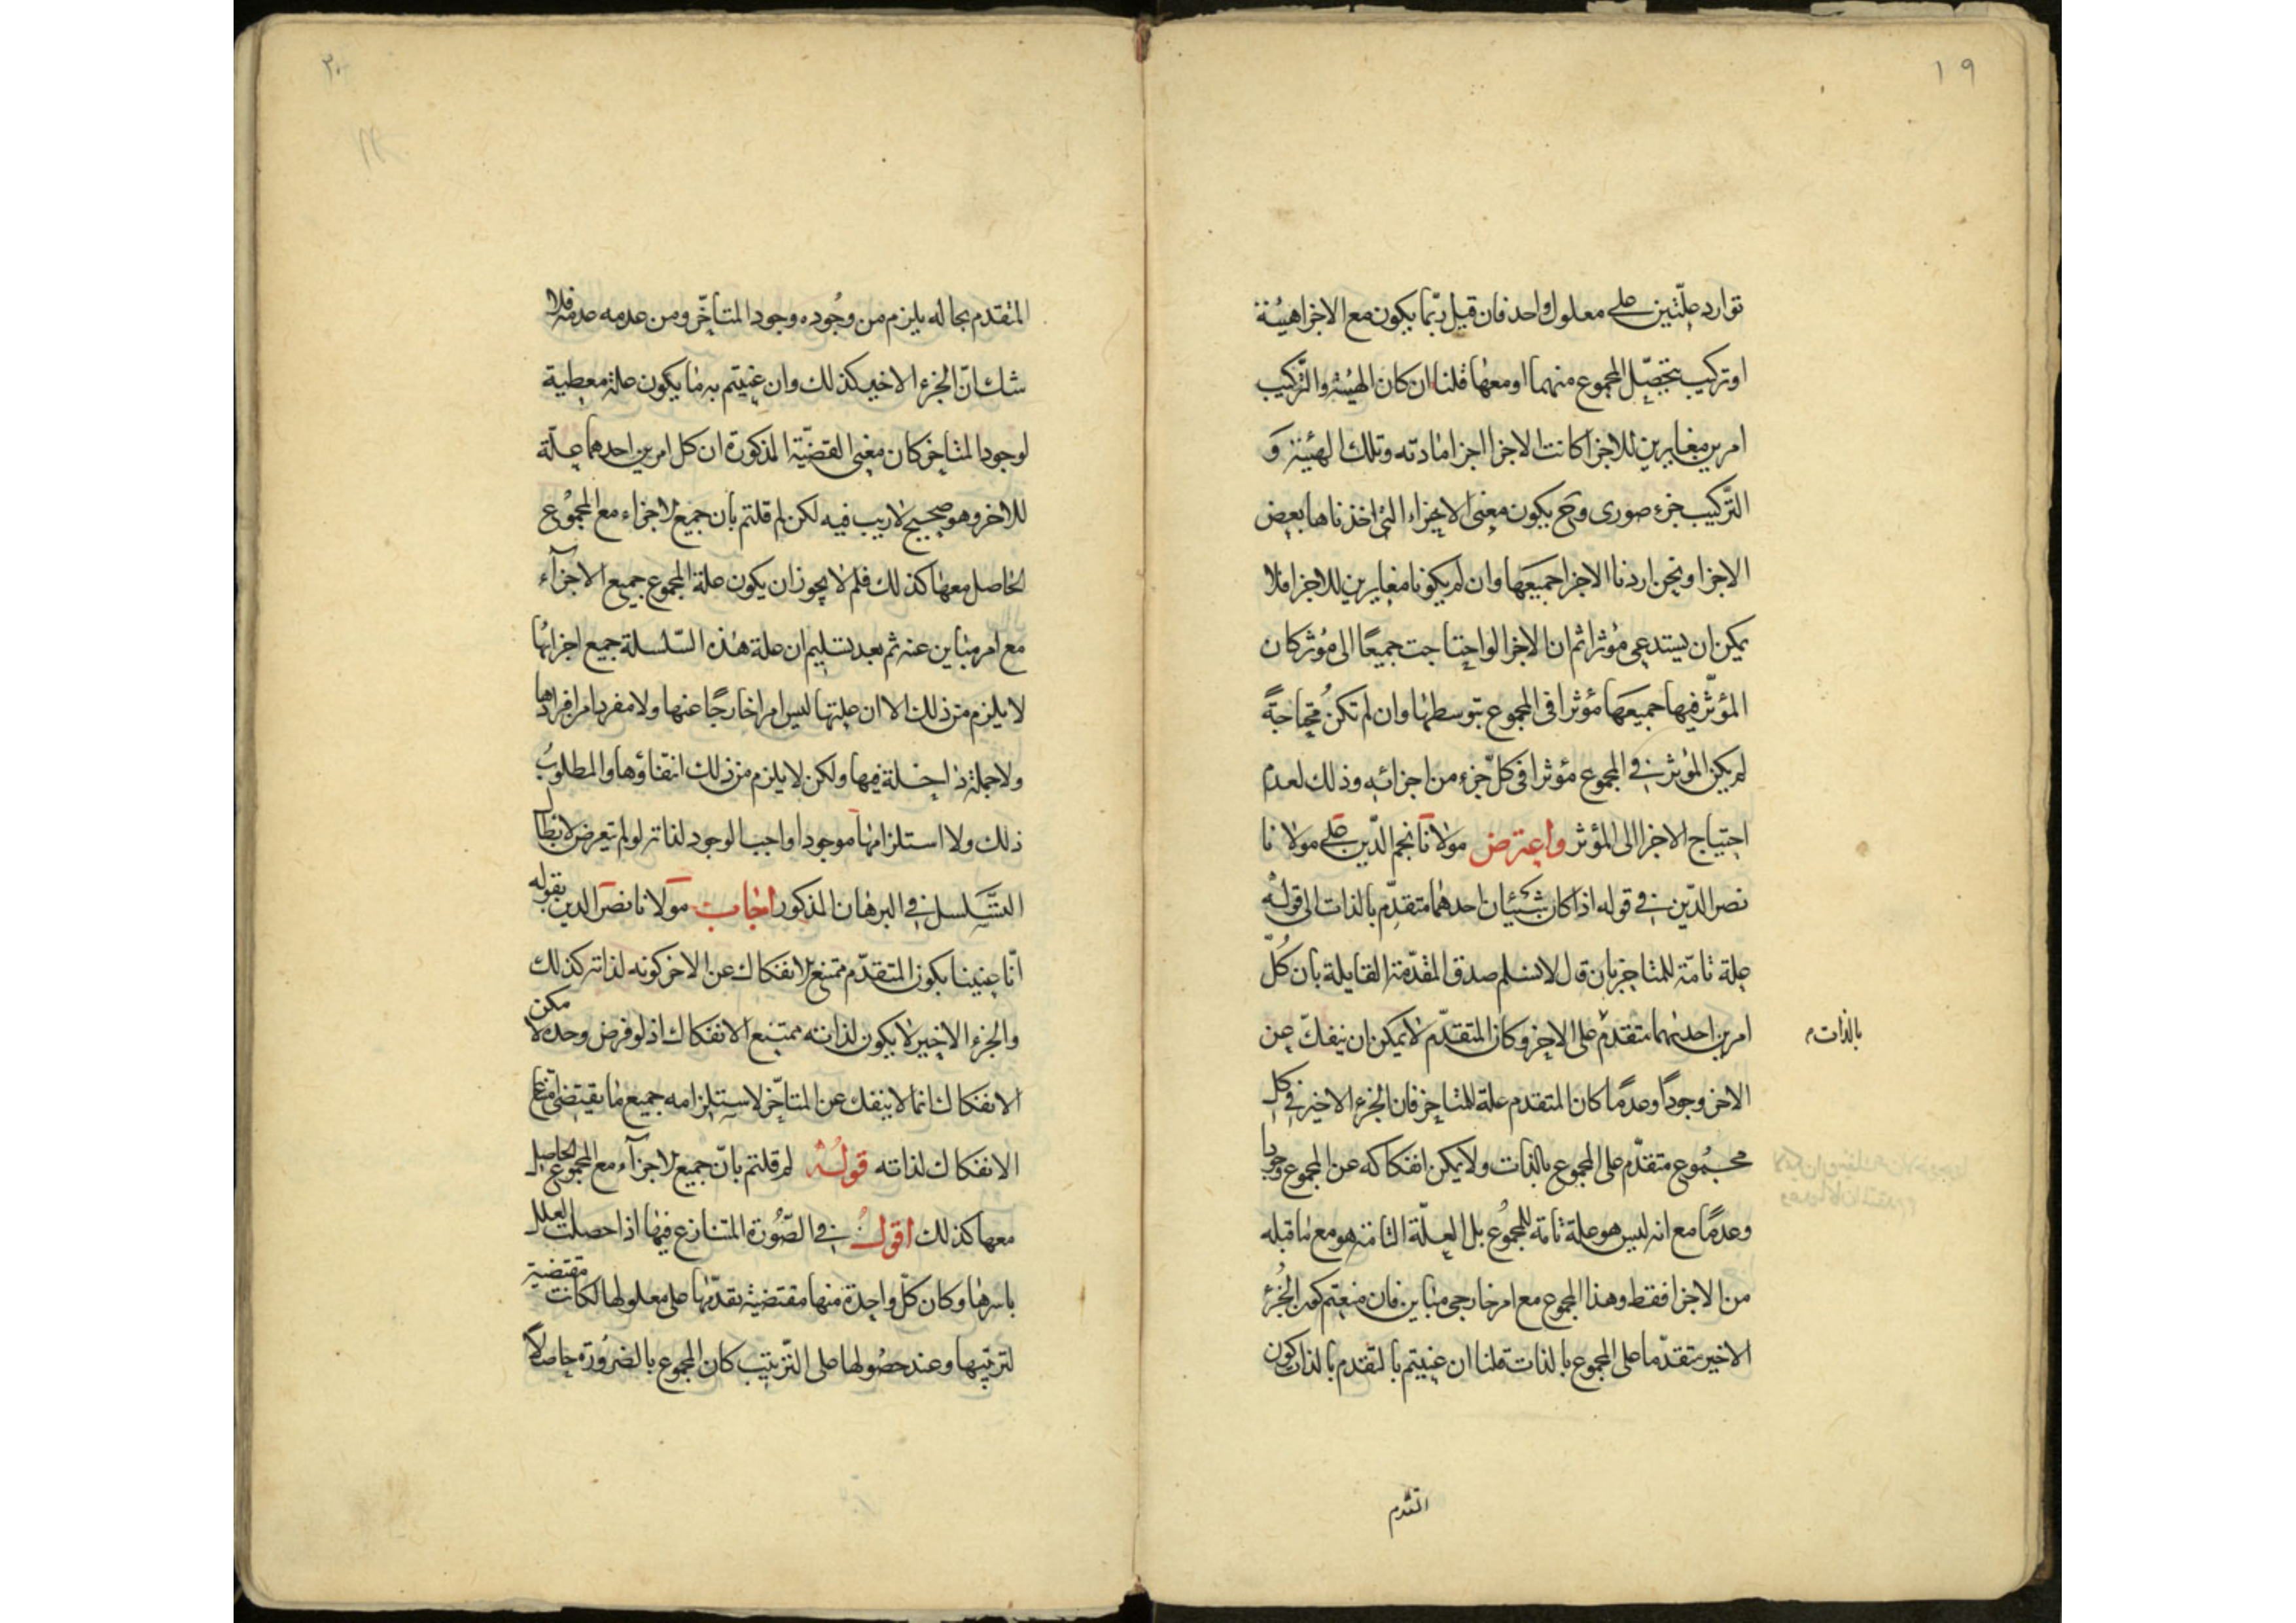 ١٩
توارد علّتين على معلول واحد فان قيل ربّما يكون مع الاجزا هيئة
او تركيب يتحصّل المجموع منهما او معها قلنا ان كان الهيئة والتّركيب
امرين مغايرين للاجزا كانت الاجزا اجزا مادته وتلك الهيئة و
التّركيب جزء صورى وح يكون معنى الاجزاء التى اخذناها بعض
الاجزا ونحن اردنا الاجزا جميعها وان لم يكونا مغايرين للاجزا فلا
يمكن ان يستدعى مؤثرا ثم ان الاجزا لو احتاجت جميعًا الى مؤثر كان
المؤثّر فيها جميعها مؤثرا فى المجموع بتوسطها وان لم تكن محتاجة
لم يكن المؤثر فى المجموع مؤثرا فى كلّ جزء من اجزائه وذلك لعدم
احتياج الاجزا الى المؤثر واعترض مولانا نجم الدّين على مولانا
نصر الدّين فى قوله اذا كان شيئان احدهما متقدّم بالذات الى قوله
علة تامّة للمتاخر بان قال لا نسلم صدق المقدّمة القايلة بان كلّ
امرين احدهما متقدّم على الاخر وكان المتقدّم لا يمكن ان ينفكّ عن
بالذات
الاخر وجودًا وعدمًا كان المتقدم علة للمتاخر فان الجزء الاخير فى كل
مجموع متقدّم على المجموع بالذات ولا يمكن انفكاكه عن المجموع وجودا
وعدمًا مع انه ليس هو علة تامة للمجموع بل العلّة التامة هو مع ما قبله
من الاجزا فقط وهذا المجموع مع امر خارجى مباين فان منعتم كون الجزء
الاخير متقدّما على المجموع بالذات قلنا ان عنيتم بالتقدم بالذات كون
المتقدم
٢٠
المتقدم بحاله يلزم من وجوده وجود المتاخّر ومن عدمه عدمه فلا
شك انّ الجزء الاخير كذلك وان عنيتم به ما يكون علة معطية
لوجود المتاخر كان معنى القضيّة المذكورة ان كل امرين احدهما علّة
للاخر وهو صحيح لا ريب فيه لكن لم قلتم بان جميع الاجزاء مع المجموع
الحاصل معها كذلك فلم لا يجوز ان يكون علة المجموع جميع الاجزآء
مع امر مباين عنه ثم بعد تسليم ان علة هذه السّلسلة جميع اجزائها
لا يلزم من ذلك الا ان علتها ليس امرا خارجًا عنها ولا مفردا من افرادها
ولا جملة داخلة فيها ولكن لا يلزم من ذلك انتفاؤها والمطلوب
ذلك ولا استلزامها موجودا واجب الوجود لذاته لو لم تعرض لابطال
التّسلسل فى البرهان المذكور اجاب مولانا نصر الدين بقوله
انّا عنينا بكون المتقدّم ممتنع الانفكاك عن الاخر كونه لذاته كذلك
والجزء الاخير لا يكون لذاته ممتنع الانفكاك اذ لو فرض وحده لا مكن
الانفكاك انما لا ينفك عن المتاخّر لاستلزامه جميع ما يقتضى امتناع
الانفكاك لذاته قوله لم قلتم بانّ جميع الاجزآء مع المجموع الحاصل
معها كذلك اقول فى الصّورة المتنازع فيها اذا حصلت العلل
باسرها وكان كلّ واحدة منها مقتضية تقدّمها على معلولها لكانت مقتضية
لترتيبها وعند حصولها على الترتيب كان المجموع بالضرورة حاصلاً